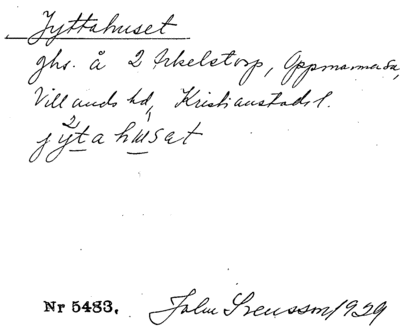 Jyttahuset
ghs. å 2 Arkelstorp, Oppmanna sn,
Villands hd, Kristianstads l.
jy²tahuset
Nr 5483. John Svensson 1929